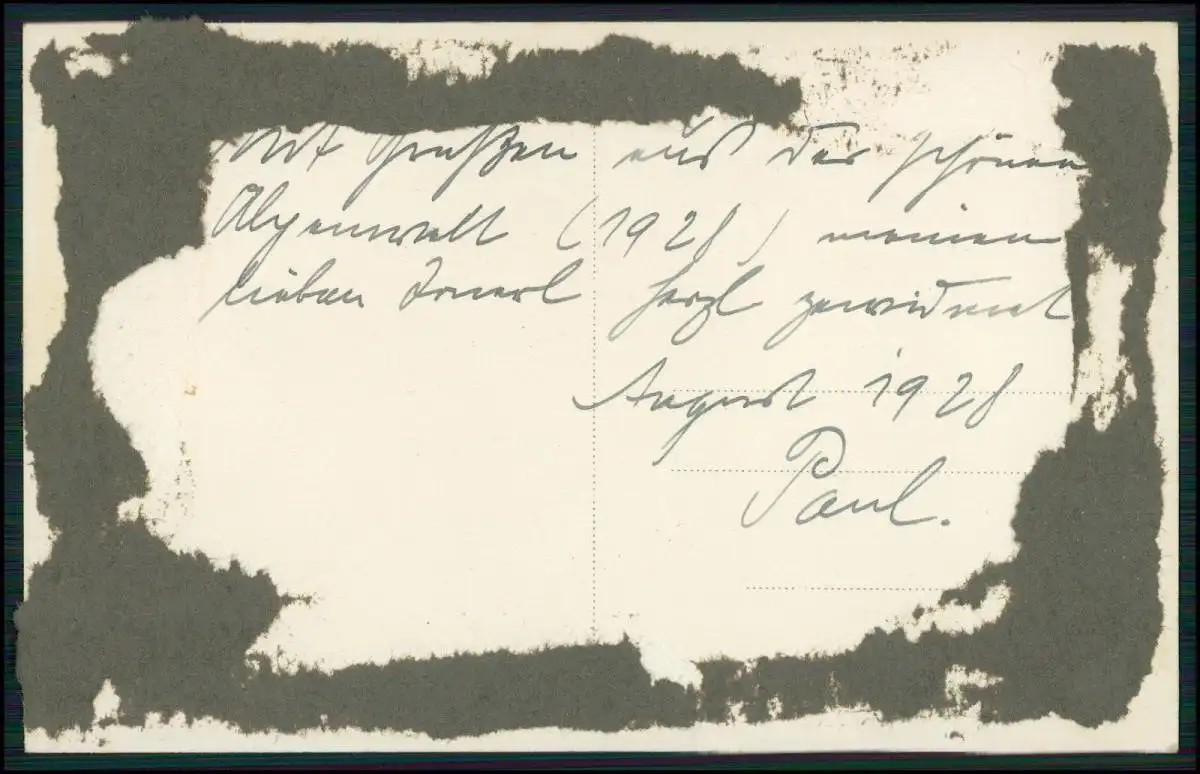 Mit Grüßen aus der schönen
Alpenwelt (1928) meinen
lieben herzl gewidmet
August 1928
Paul.